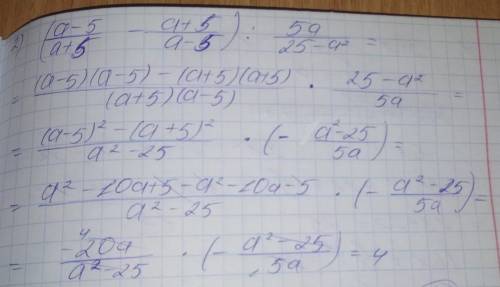 2) ((a-5)/(a+5) - (a+5)/(a-5)) : 5a/(25-a²) =
= ((a-5)(a-5) - (a+5)(a+5))/((a+5)(a-5)) · (25-a²)/5a =
= ((a-5)² - (a+5)²)/(a²-25) · (- (a²-25)/5a) =
= (a² - 10a + 5 - a² - 10a - 5)/(a² - 25) · (- (a² - 25)/5a) =
= 4 -20a/(a² - 25) · (- (a² - 25)/5a) = 4